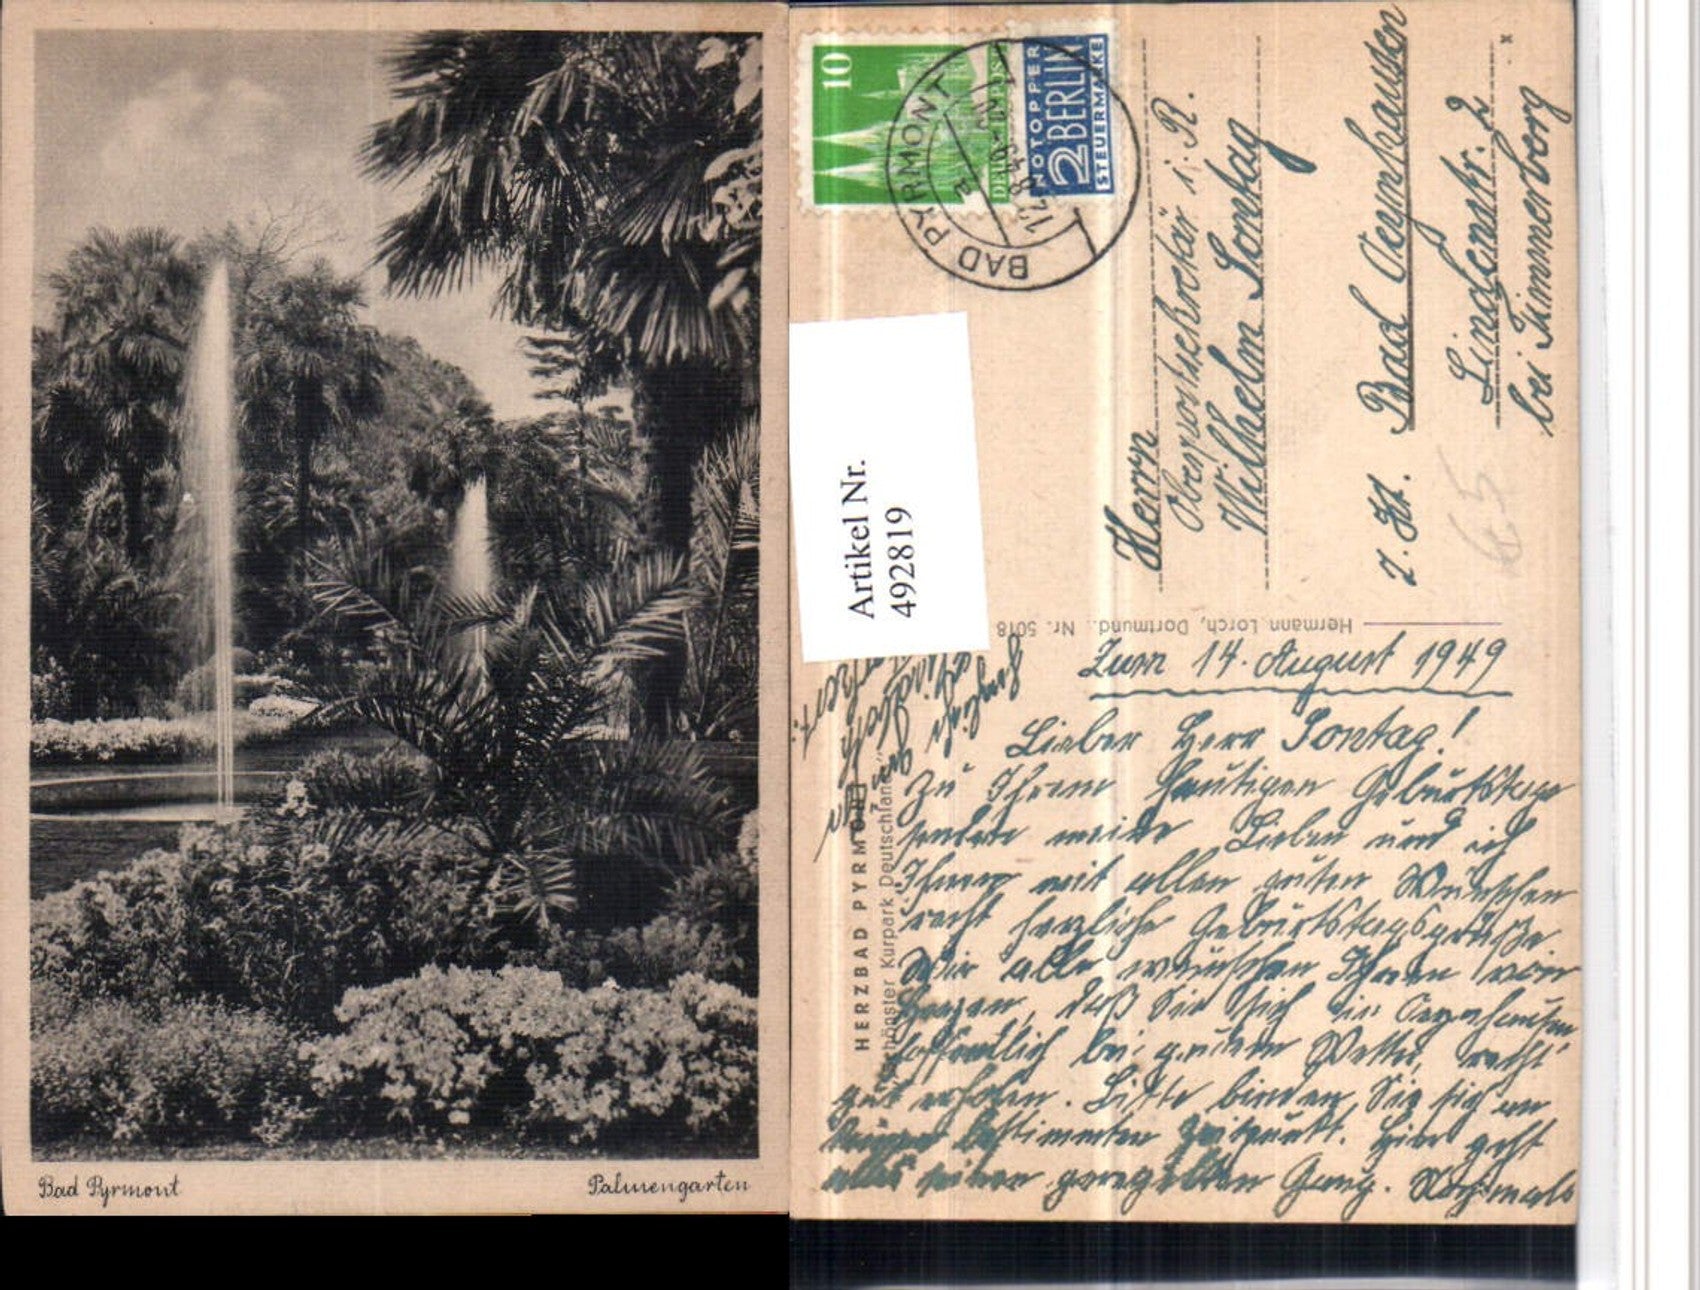 Bad Pyrmont
Palmengarten
10
DEUTSCHE POST
NOTOPFER
2 BERLIN
STEUERMARKE
BAD PYRMONT
Artikel Nr.
4928819
Herrn
Oberpostsekretär i. R.
Wilhelm Sontag
z. Zt. Bad Oeynhausen
Lindenstr. 2
bei Timmerberg
65
Hermann Lorch, Dortmund. Nr. 5018
HERZBAD PYRMONT
Schönster Kurpark Deutschlands
Zum 14. August 1949
Lieber Herr Sontag!
Zu Ihrem heutigen Geburtstage
senden meine Lieben und ich
Ihnen mit allen guten Wünschen
recht herzliche Geburtstagsgrüße.
Wir alle wünschen Ihnen von
Herzen, daß Sie sich in Oeynhausen
hoffentlich bei gutem Wetter, recht
gut erholen. Bitte binden Sie sich an
keinen bestimmten Zeitpunkt. Hier geht
alles seinen geregelten Gang. Nochmals
herzliche